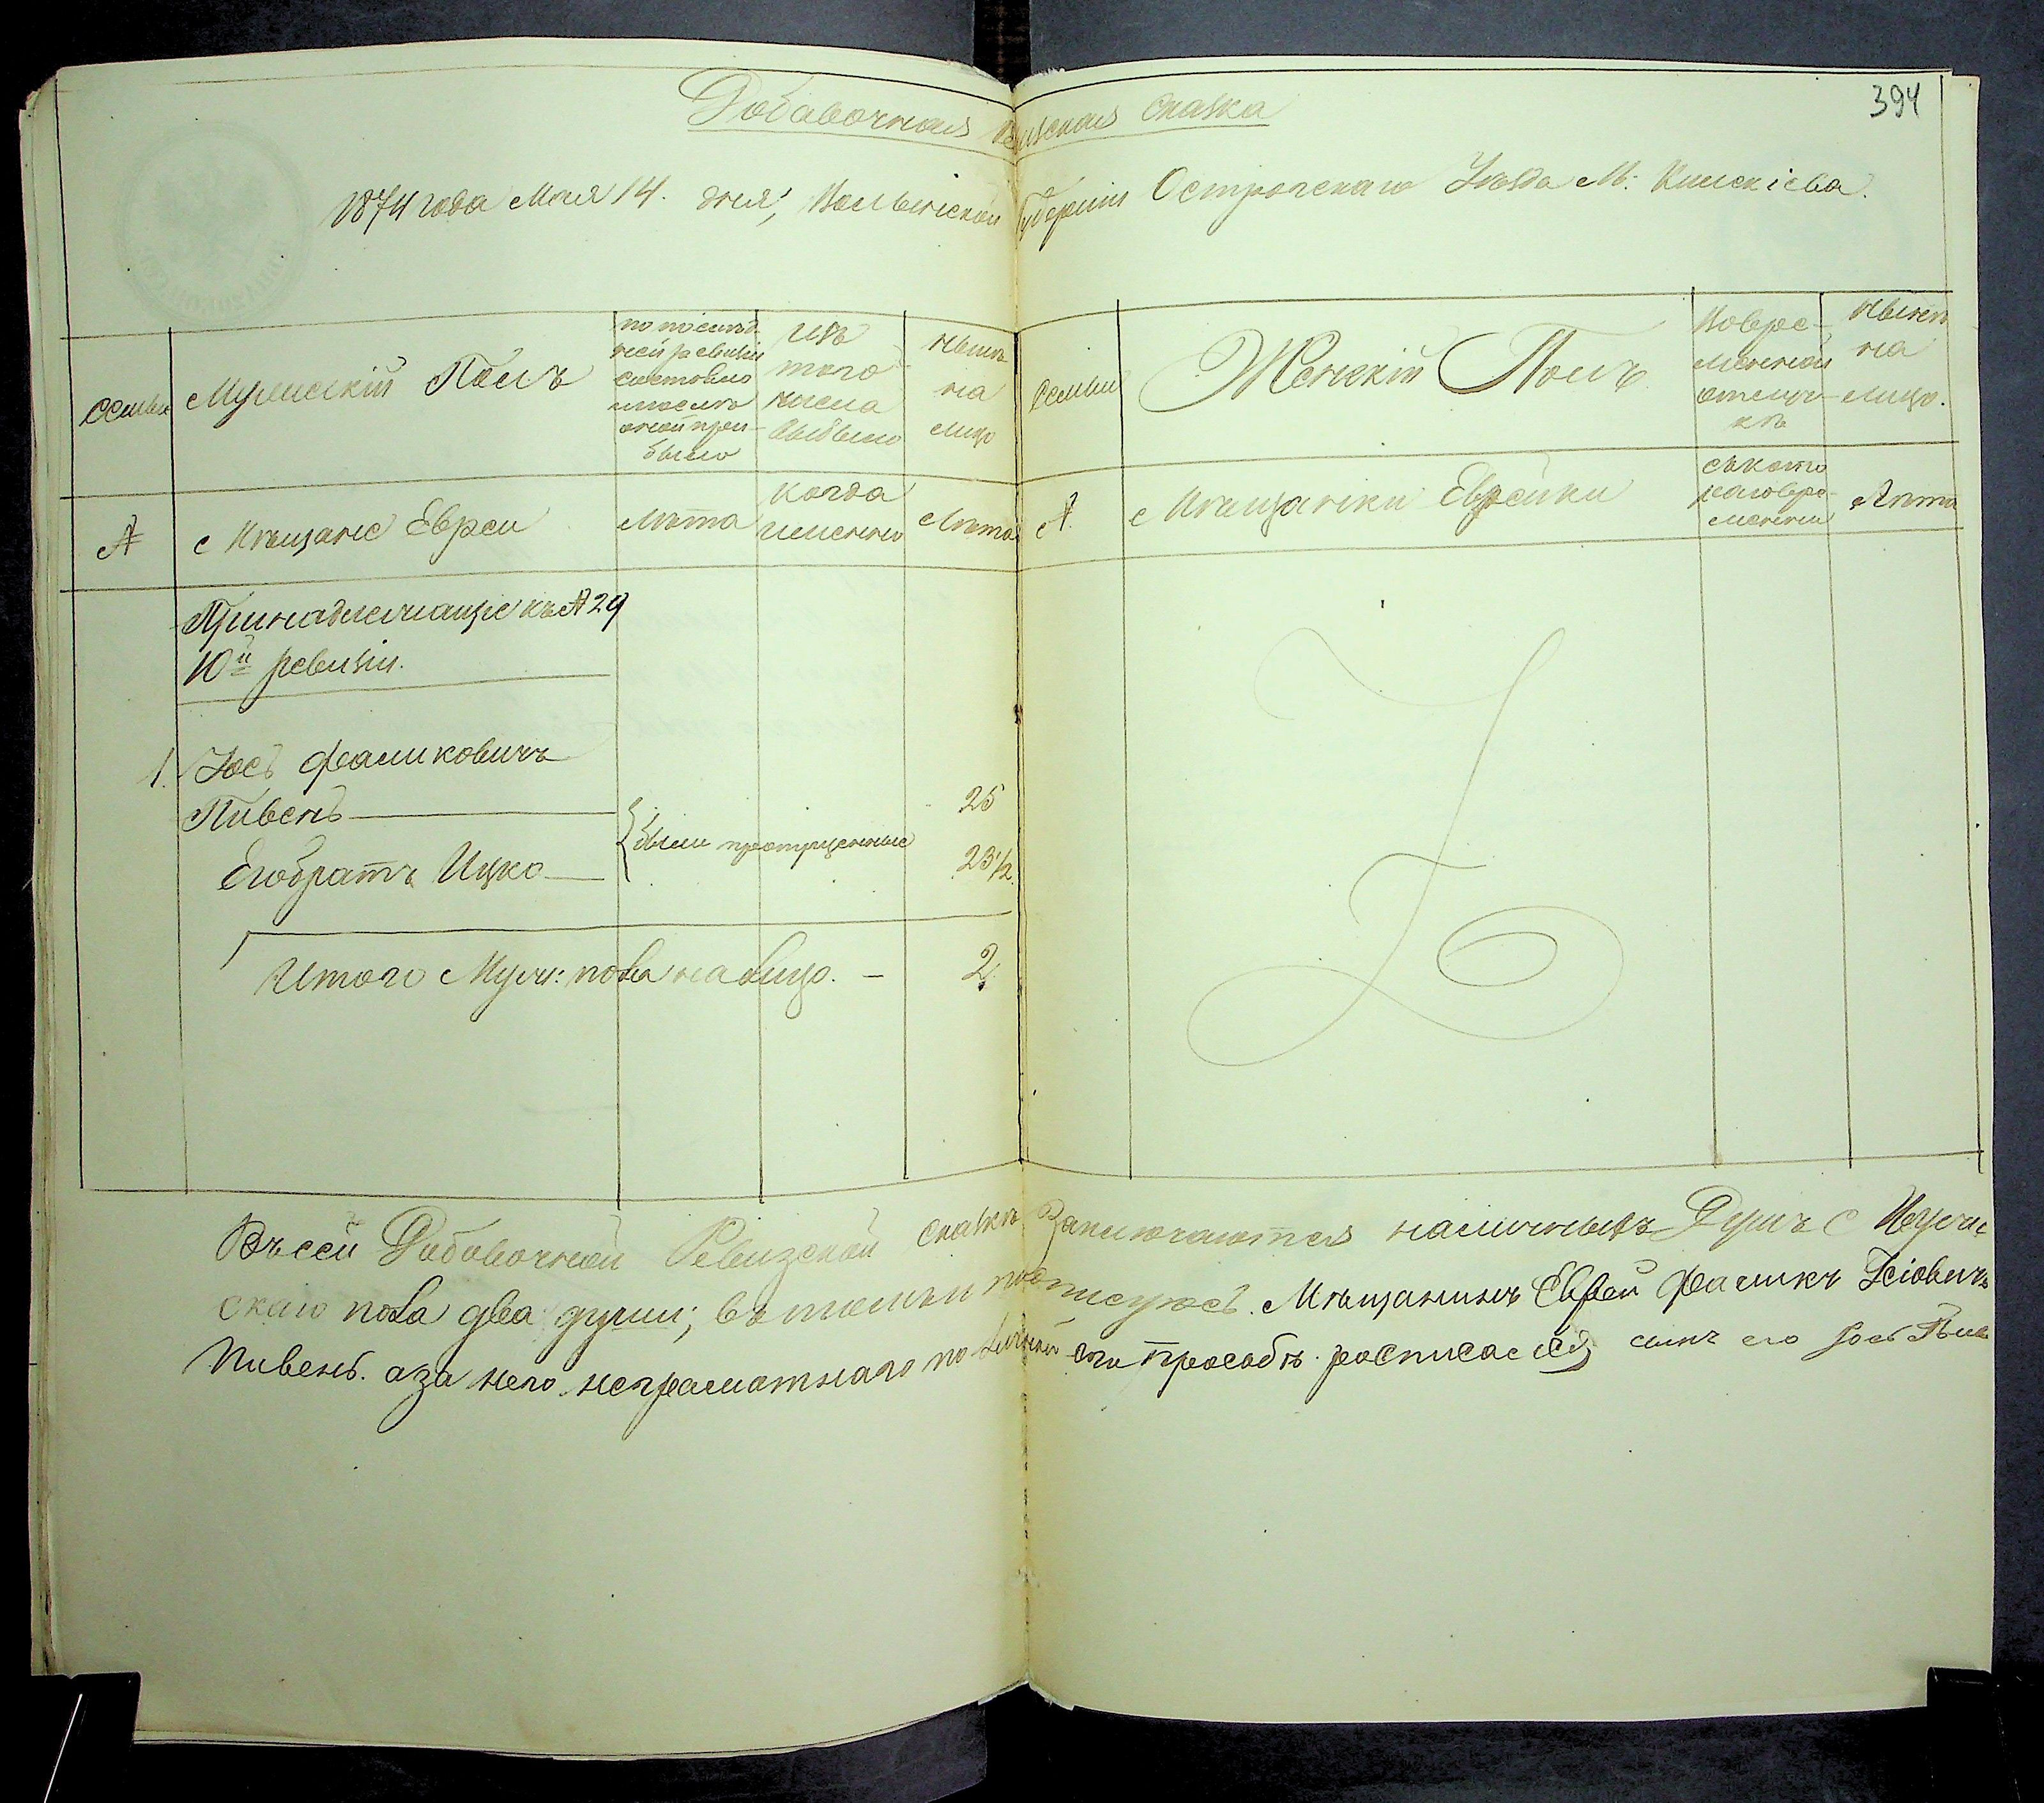 394
Добавочная Ревизская Сказка
1874 года Мая 14. дня, Волынской Губернии Острогскаго Уѣзда М: Килекіева.
Семьи
Мужескій Полъ
по послѣд-
ней ревизіи
состояло
и послѣ
оной при-
было
Изъ
того
числа
выбыло
Нынѣ
на
лицо
Семьи
Женскій Полъ
Во вре-
менной
отлуч-
кѣ
Нынѣ
на
лицо.
№
Мѣщане Евреи
Лѣта
Когда
именно
Лѣта
№
Мѣщанки Еврейки
Съ кото
раго вре-
мени
Лѣта
Принадлежащіе къ № 29
10й ревизіи.
1. Іось Фаликовичъ
Пивень 25
Его братъ Ицко были пропущенные 23 1/2
Итого Муж: пола на лицо. — 2
Въ сей Добавочной Ревизской сказкѣ Заключаются наличныхъ Душъ Муже
скаго пола два души; въ томъ и подписуюсь. Мѣщанинъ Еврей Фаликъ Іосіовичъ
Пивень. а за него неграмотнаго по личной его прозьбѣ росписался сынъ его Іось Пиве